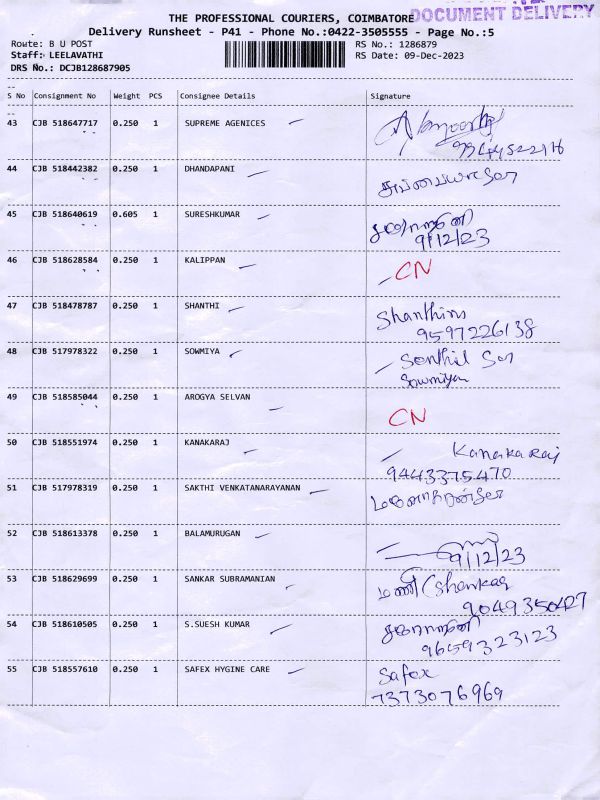 THE PROFESSIONAL COURIERS, COIMBATORE
DOCUMENT DELIVERY
Delivery Runsheet - P41 - Phone No.:0422-3505555 - Page No.:5
Route: B U POST
RS No.: 1286879
Staff: LEELAVATHI
RS Date: 09-Dec-2023
DRS No.: DCJB128687905
S No Consignment No Weight PCS Consignee Details Signature
43 CJB 518647717 0.250 1 SUPREME AGENICES
44 CJB 518442382 0.250 1 DHANDAPANI
45 CJB 518640619 0.605 1 SURESHKUMAR
9/12/23
46 CJB 518628584 0.250 1 KALIPPAN CN
47 CJB 518478787 0.250 1 SHANTHI
9597226138
48 CJB 517978322 0.250 1 SOWMIYA Senthil
Sowmiya
49 CJB 518585044 0.250 1 AROGYA SELVAN
CN
50 CJB 518551974 0.250 1 KANAKARAJ Kanakaraj
9443375470
51 CJB 517978319 0.250 1 SAKTHI VENKATANARAYANAN
52 CJB 518613378 0.250 1 BALAMURUGAN
9/12/23
53 CJB 518629699 0.250 1 SANKAR SUBRAMANIAN மணி (Shankar
54 CJB 518610505 0.250 1 S.SUESH KUMAR
9659323123
55 CJB 518557610 0.250 1 SAFEX HYGINE CARE Safex
7373076969